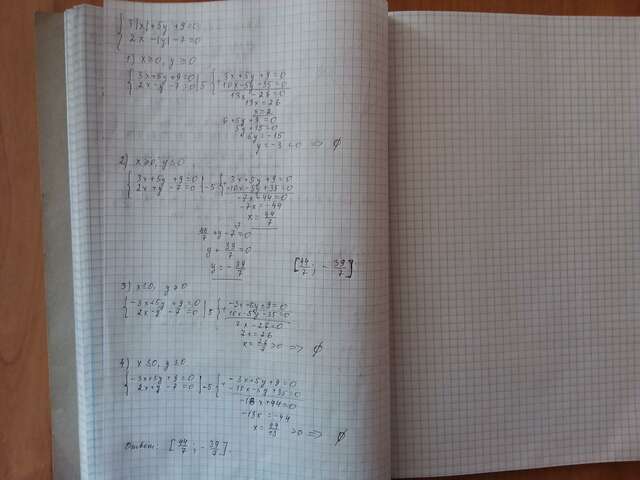 { 3|x|+5y+9=0
{ 2x-|y|-7=0
1) x≥0, y≥0
{ 3x+5y+9=0 { 3x+5y+9=0
{ 2x-y-7=0 |5 { 10x-5y-35=0
13x-26=0
13x=26
x=2
6+5y+9=0
5y+15=0
5y=-15
y=-3<0 => ∅
2) x≥0, y≤0
{ 3x+5y+9=0 { 3x+5y+9=0
{ 2x+y-7=0 |-5 { -10x-5y+35=0
-7x+44=0
-7x=-44
x=44/7
88/7+y-7=0
y+39/7=0
y=-39/7 [44/7; -39/7]
3) x≤0, y≥0
{ -3x+5y+9=0 { -3x+5y+9=0
{ 2x-y-7=0 |5 { 10x-5y-35=0
7x-26=0
7x=26
x=26/7>0 => ∅
4) x≤0, y≤0
{ -3x+5y+9=0 { -3x+5y+9=0
{ 2x+y-7=0 |-5 { -10x-5y+35=0
-13x+44=0
-13x=-44
x=44/13 >0 => ∅
Ответ: [44/7; -39/7]